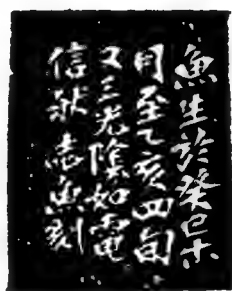 魚生於癸巳
月至乙亥四旬
又三光陰如電
信志魚刻